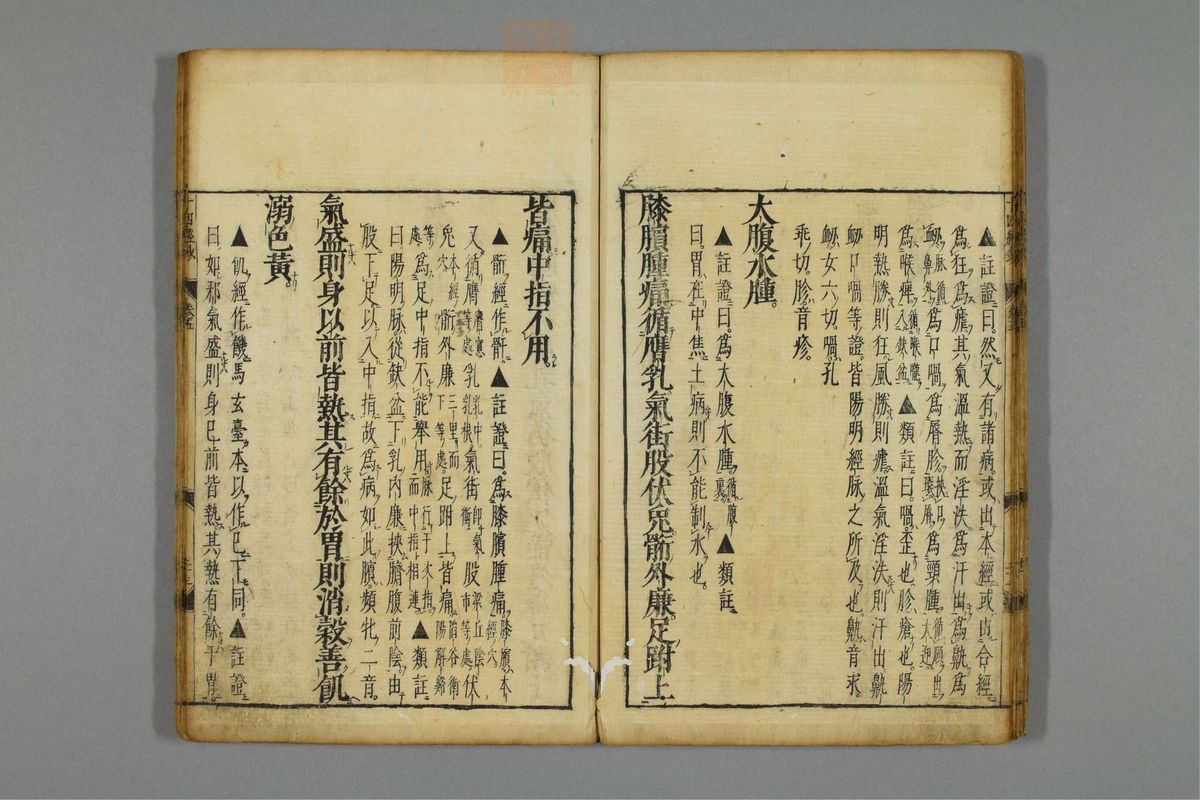 ▲註證曰然又有諸病或出本經或出合經
爲狂爲瘧其氣溫熱而淫泆爲汗出爲鼽爲
衄爲口喎爲唇胗爲頸腫
爲喉痺▲類註曰喎歪也胗瘡也陽
明熱勝則狂風勝則瘧溫氣淫泆則汗出鼽
衄口喎等證皆陽明經脉之所及也鼽音求
衄女六切喎孔
乖切胗音疹
大腹水腫
▲註證曰爲大腹水腫▲類註
曰胃在中焦土病則不能制水也
膝臏腫痛循膺乳氣街股伏兎骭外廉足跗上
皆痛中指不用
▲骭經作骬▲註證曰爲膝臏腫痛膝臏本經穴
又循膺等處乳乳中乳根氣街股伏
兎穴本經骭外廉三里而下等處足跗上皆痛陷谷衝陽解谿
等處爲足中指不能舉用▲類註
曰陽明脉從缺盆下乳內廉挾臍腹前陰由
股下足以入中指故爲病如此臏頻牝二音
氣盛則身以前皆熱其有餘於胃則消穀善飢
溺色黃
▲飢經作饑馬玄臺本以作已下同▲註證
曰如邪氣盛則身已前皆熱其熱有餘于胃
十四經脉 卷五